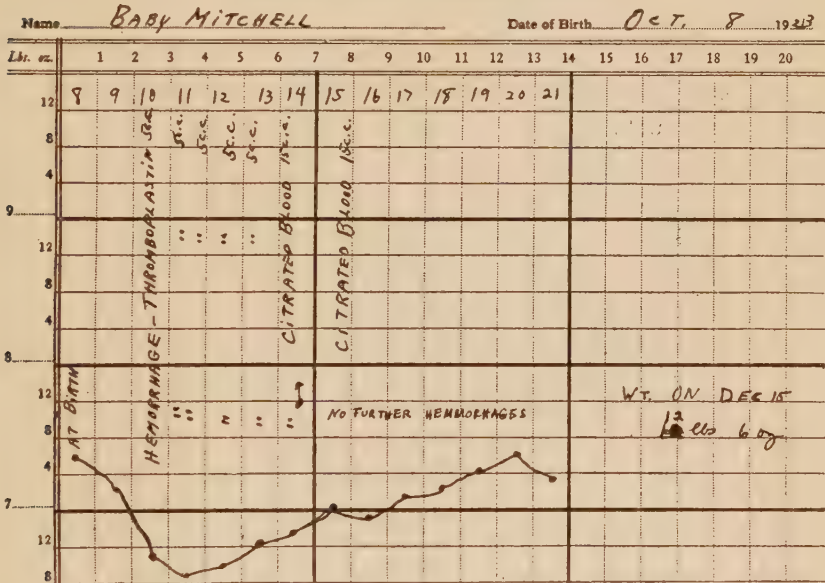 Name BABY MITCHELL Date of Birth OCT. 8 19
Lbs. oz. 1 2 3 4 5 6 7 8 9 10 11 12 13 14 15 16 17 18 19 20
8 9 10 11 12 13 14 15 16 17 18 19 20 21
12
8
4
9
12
8
4
8
12
8
4
7
12
8
AT BIRTH
HEMORRHAGE - THROMBOPLASTIN 5c.c.
5c.c.
5c.c.
5c.c.
5c.c.
CITRATED BLOOD 15c.c.
CITRATED BLOOD 15c.c.
" " " "
" " " " "
NO FURTHER HEMMORHAGES
WT. ON DEC 15
12 lbs 6 oz